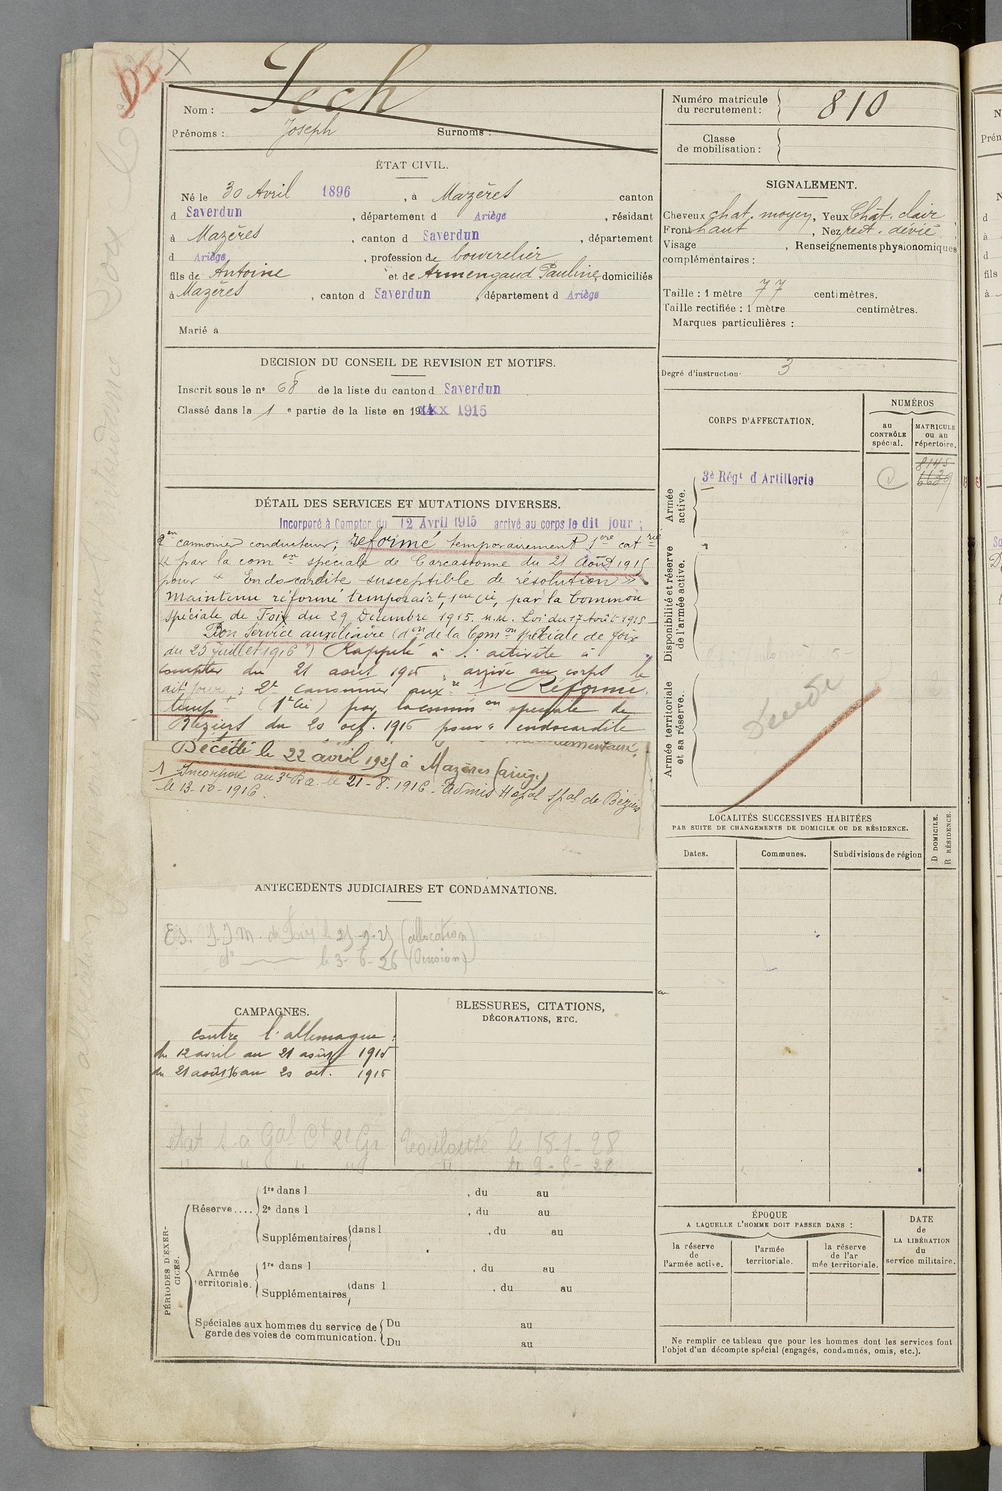 D
X
Nom : Pech
Prénoms : Joseph Surnoms :
ÉTAT CIVIL.
Né le 30 Avril 1896, à Mazères canton
d Saverdun, département d Ariège, résidant
à Mazères, canton d Saverdun, département
d Ariège, profession de bourrelier
fils de Antoine et de Armengaud Pauline, domiciliés
à Mazères, canton d Saverdun, département d Ariège
Marié à
DECISION DU CONSEIL DE REVISION ET MOTIFS.
Inscrit sous le n° 68 de la liste du canton d Saverdun
Classé dans la 1 e partie de la liste en 191 1915
DÉTAIL DES SERVICES ET MUTATIONS DIVERSES.
Incorporé à Compter du 12 Avril 1915 arrivé au corps le dit jour ;
2en canonnier conducteur ; réformé temporairement 1ère catrie
par la comon spéciale de Carcassonne du 21 Août 1915
pour « Endocardite susceptible de résolution »
Maintenu réformé temporairt, 1ère cie, par la Common
spéciale de Foix du 29 Décembre 1915. Loi du 17 Août 1915
Bon service auxiliaire (don de la Comon spéciale de Foix
du 25 juillet 1916) Rappelé à l'activité à
compter du 21 août 1915, arrivé au corps le
dit jour ; 2e canonnier auxre Réformé
temp (1e Cie) par la comm on spéciale de
Béziers du 20 oct. 1916 pour « endocardite
Décédé le 22 avril 1925 à Mazères (ariège)
1 Incorporé au 3e R.a. le 21-8-1916. Admis Hôpal spal de Béziers
le 13-10-1916.
ANTECEDENTS JUDICIAIRES ET CONDAMNATIONS.
(allocation)
d° le 3-6-26 (Pension)
CAMPAGNES.
contre l'allemagne :
du 12 avril au 21 août 1915
du 21 août 16 au 20 oct. 1915
BLESSURES, CITATIONS,
DÉCORATIONS, ETC.
Toulouse le 18-1-28
PÉRIODES D'EXERCICES.
Réserve.... 1re dans l , du au
2e dans l , du au
Supplémentaires dans l , du au
Armée territoriale. 1re dans l , du au
Supplémentaires dans l , du au
Spéciales aux hommes du service de garde des voies de communication. Du au
Du au
Numéro matricule
du recrutement : 810
Classe
de mobilisation :
SIGNALEMENT.
Cheveux chat. moyen, Yeux Chât. clair
Front haut, Nez rect. dévié
Visage , Renseignements physionomiques
complémentaires :
Taille : 1 mètre 77 centimètres.
Taille rectifiée : 1 mètre centimètres.
Marques particulières :
Degré d'instruction 3
CORPS D'AFFECTATION.
NUMÉROS
au CONTRÔLE spécial.
MATRICULE ou au répertoire.
Armée active.
3e Régt d Artillerie
8145
Disponibilité et réserve de l'armée active.
Armée territoriale et sa réserve.
LOCALITÉS SUCCESSIVES HABITÉES
PAR SUITE DE CHANGEMENTS DE DOMICILE OU DE RÉSIDENCE.
Dates. Communes. Subdivisions de région
D DOMICILE.
R RÉSIDENCE.
ÉPOQUE
A LAQUELLE L'HOMME DOIT PASSER DANS :
la réserve de l'armée active.
l'armée territoriale.
la réserve de l'armée territoriale.
DATE DE LA LIBÉRATION du service militaire.
Ne remplir ce tableau que pour les hommes dont les services font
l'objet d'un décompte spécial (engagés, condamnés, omis, etc.).